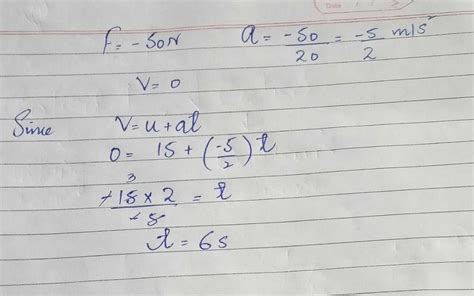 Date
F = -50N a = -50/20 = -5/2 m/s²
V = 0
Since V = u + at
0 = 15 + (-5/2) t
-15 × 2 / -5 = t 3
t = 6s